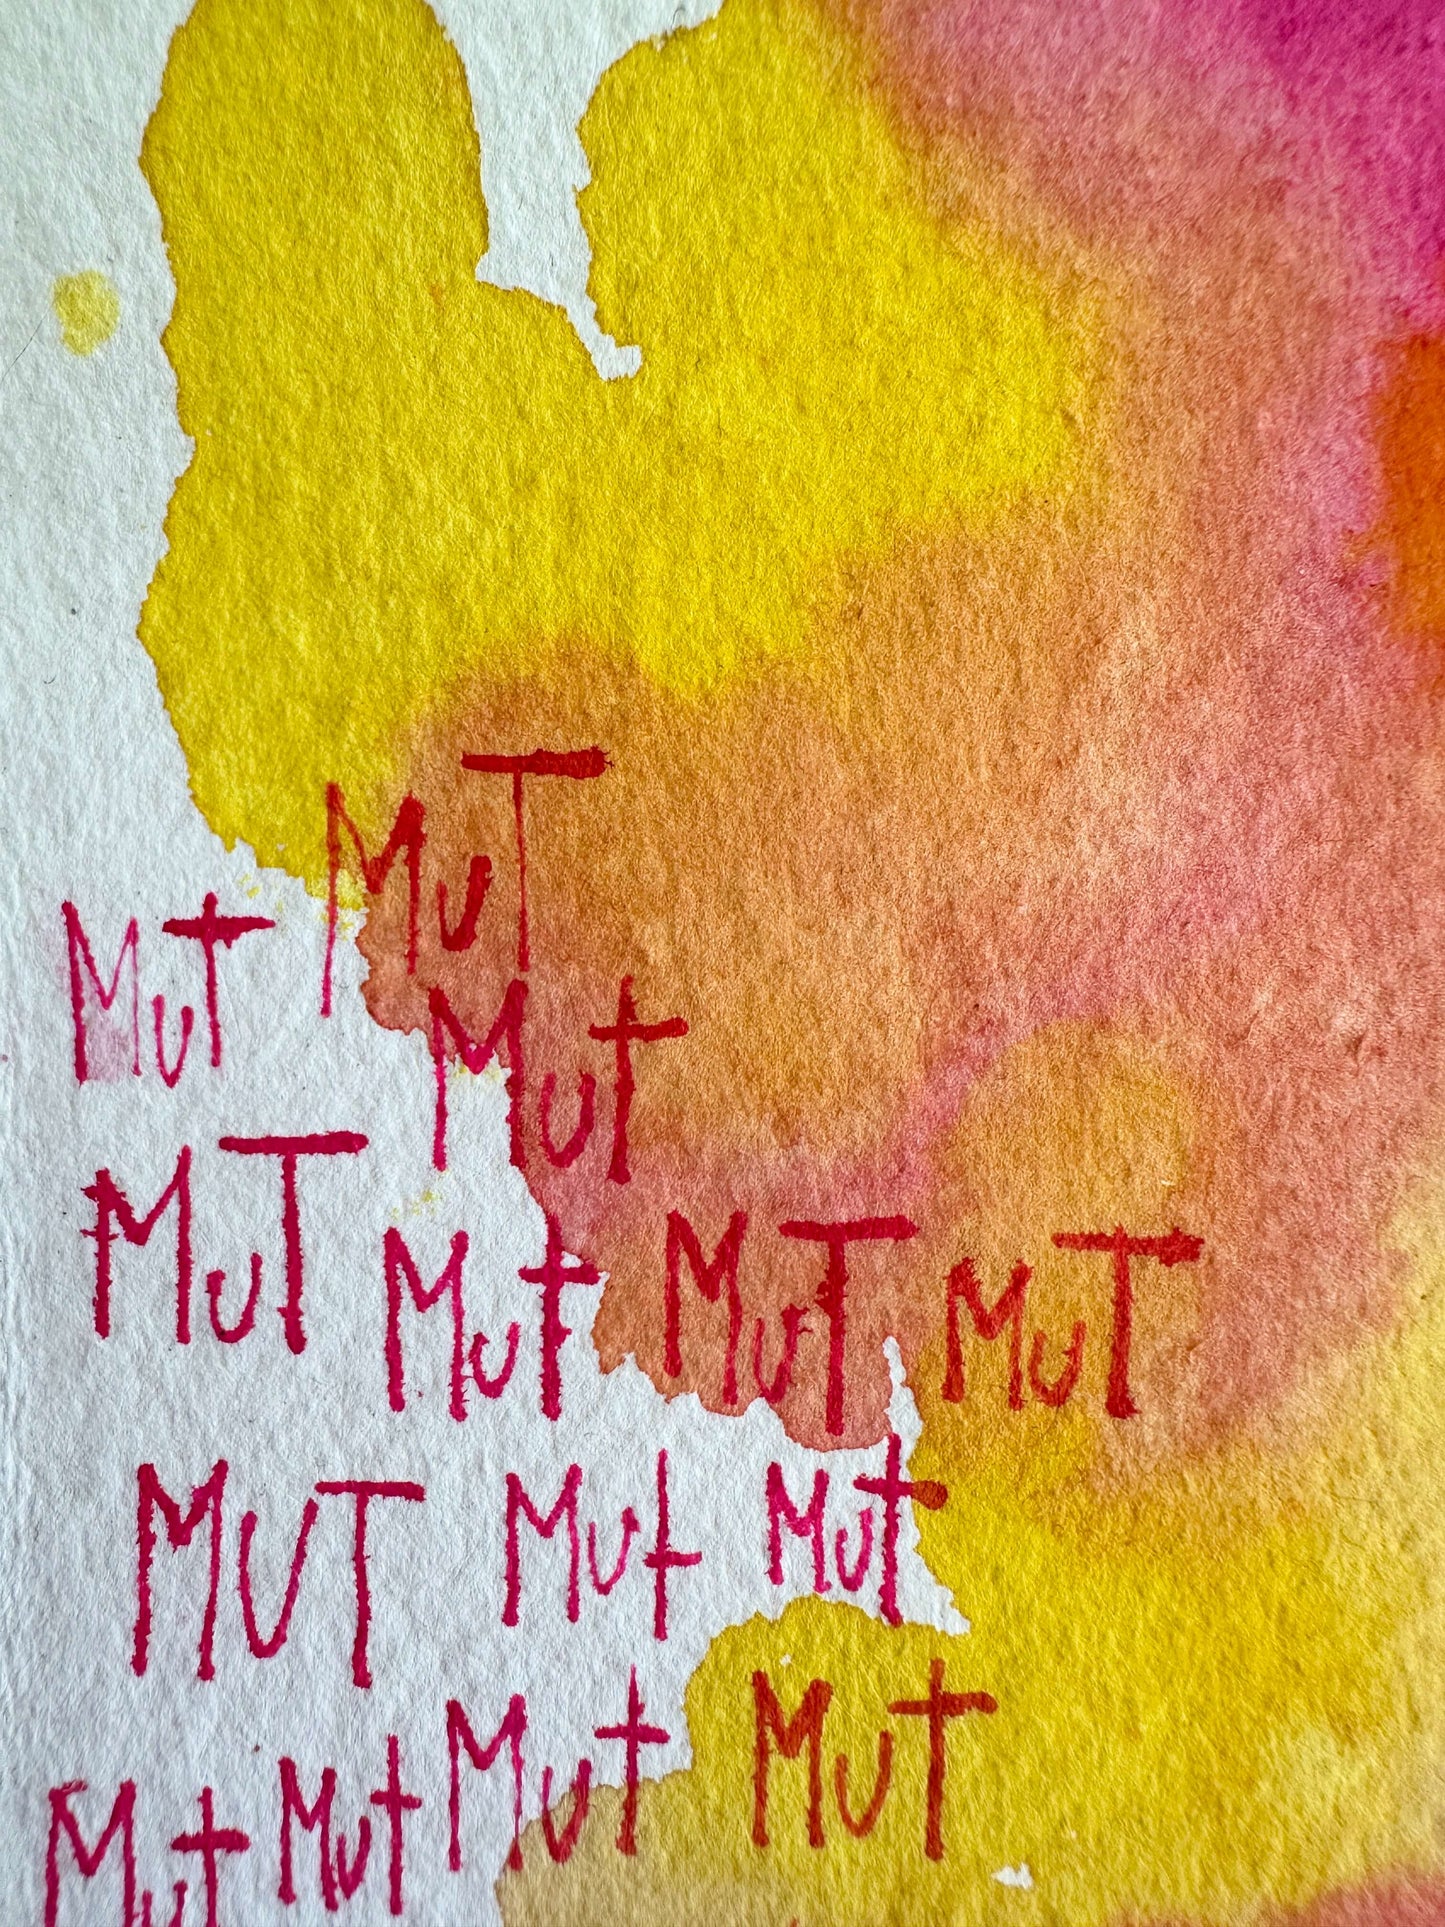 MUT
MUt MUt
MUT MUt MUT MUT
MUT MUt MUt
MUt MUt MUt MUT